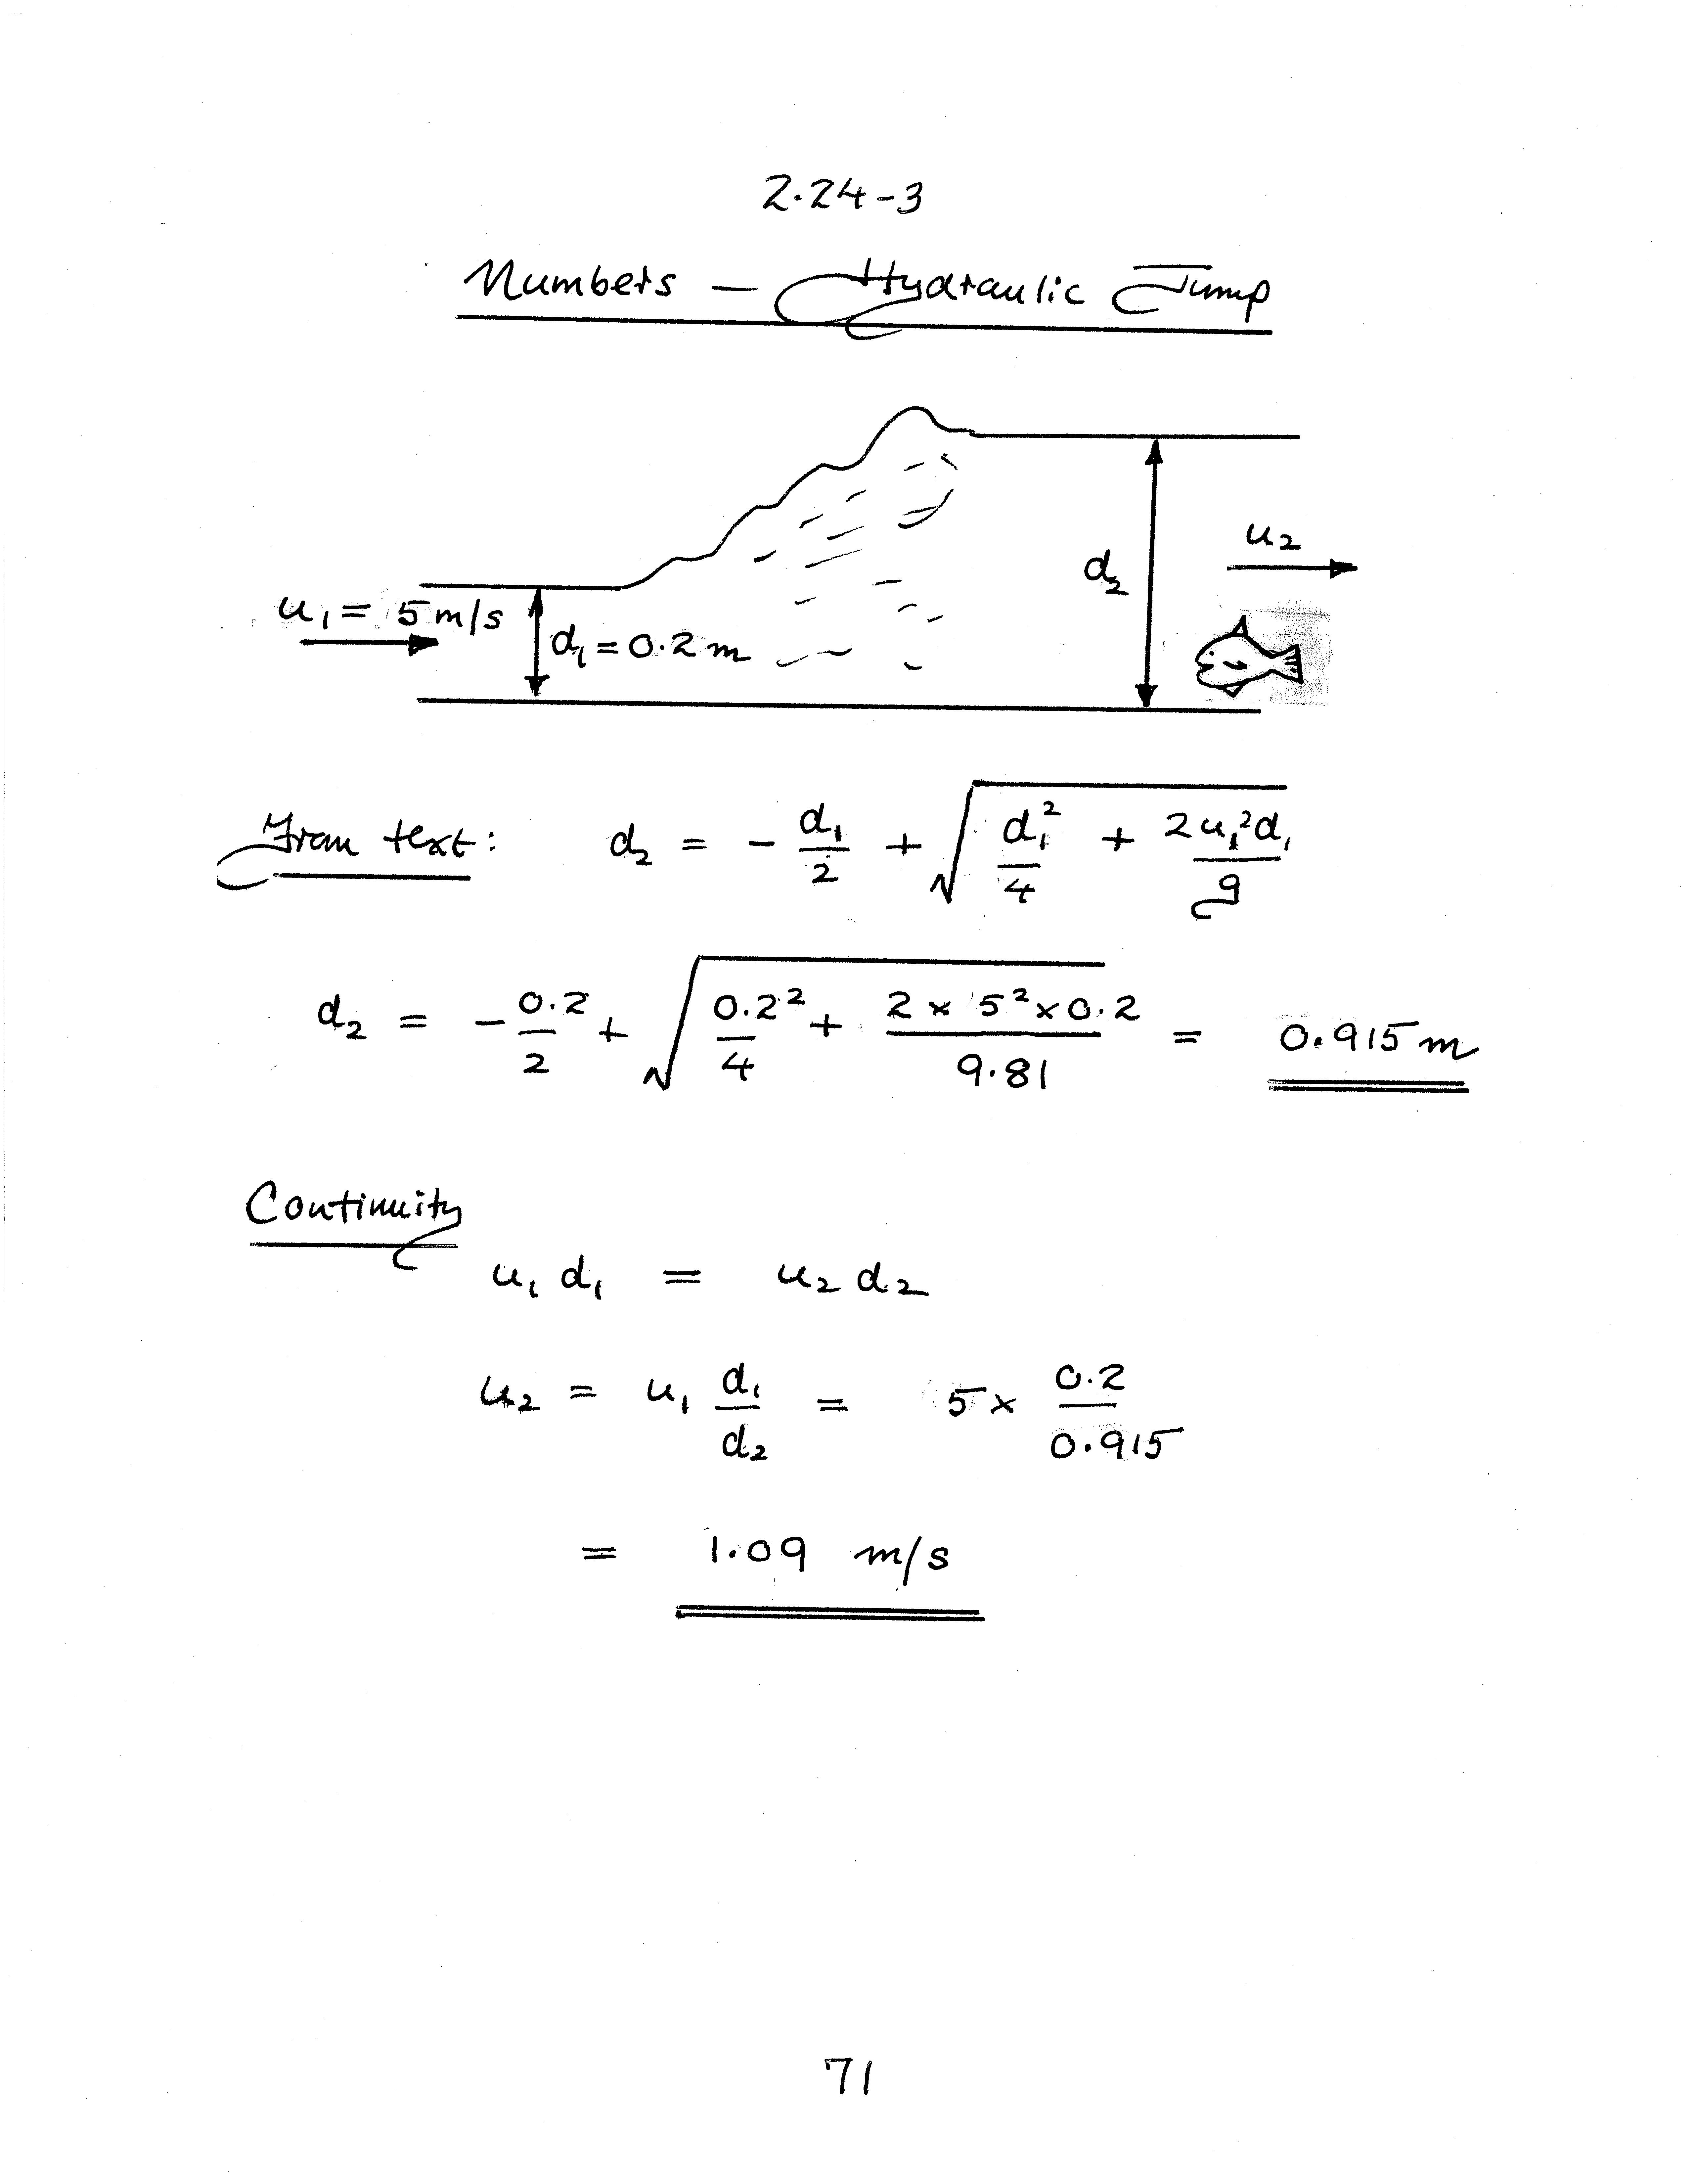 2.24-3
Numbers — Hydraulic Jump
u₂
d₂
u₁ = 5 m/s
d₁ = 0.2 m
From text: d₂ = - d₁/2 + √(d₁²/4 + 2u₁²d₁/g)
d₂ = - 0.2/2 + √(0.2²/4 + 2 × 5² × 0.2/9.81) = 0.915 m
Continuity
u₁ d₁ = u₂ d₂
u₂ = u₁ d₁/d₂ = 5 × 0.2/0.915
= 1.09 m/s
71